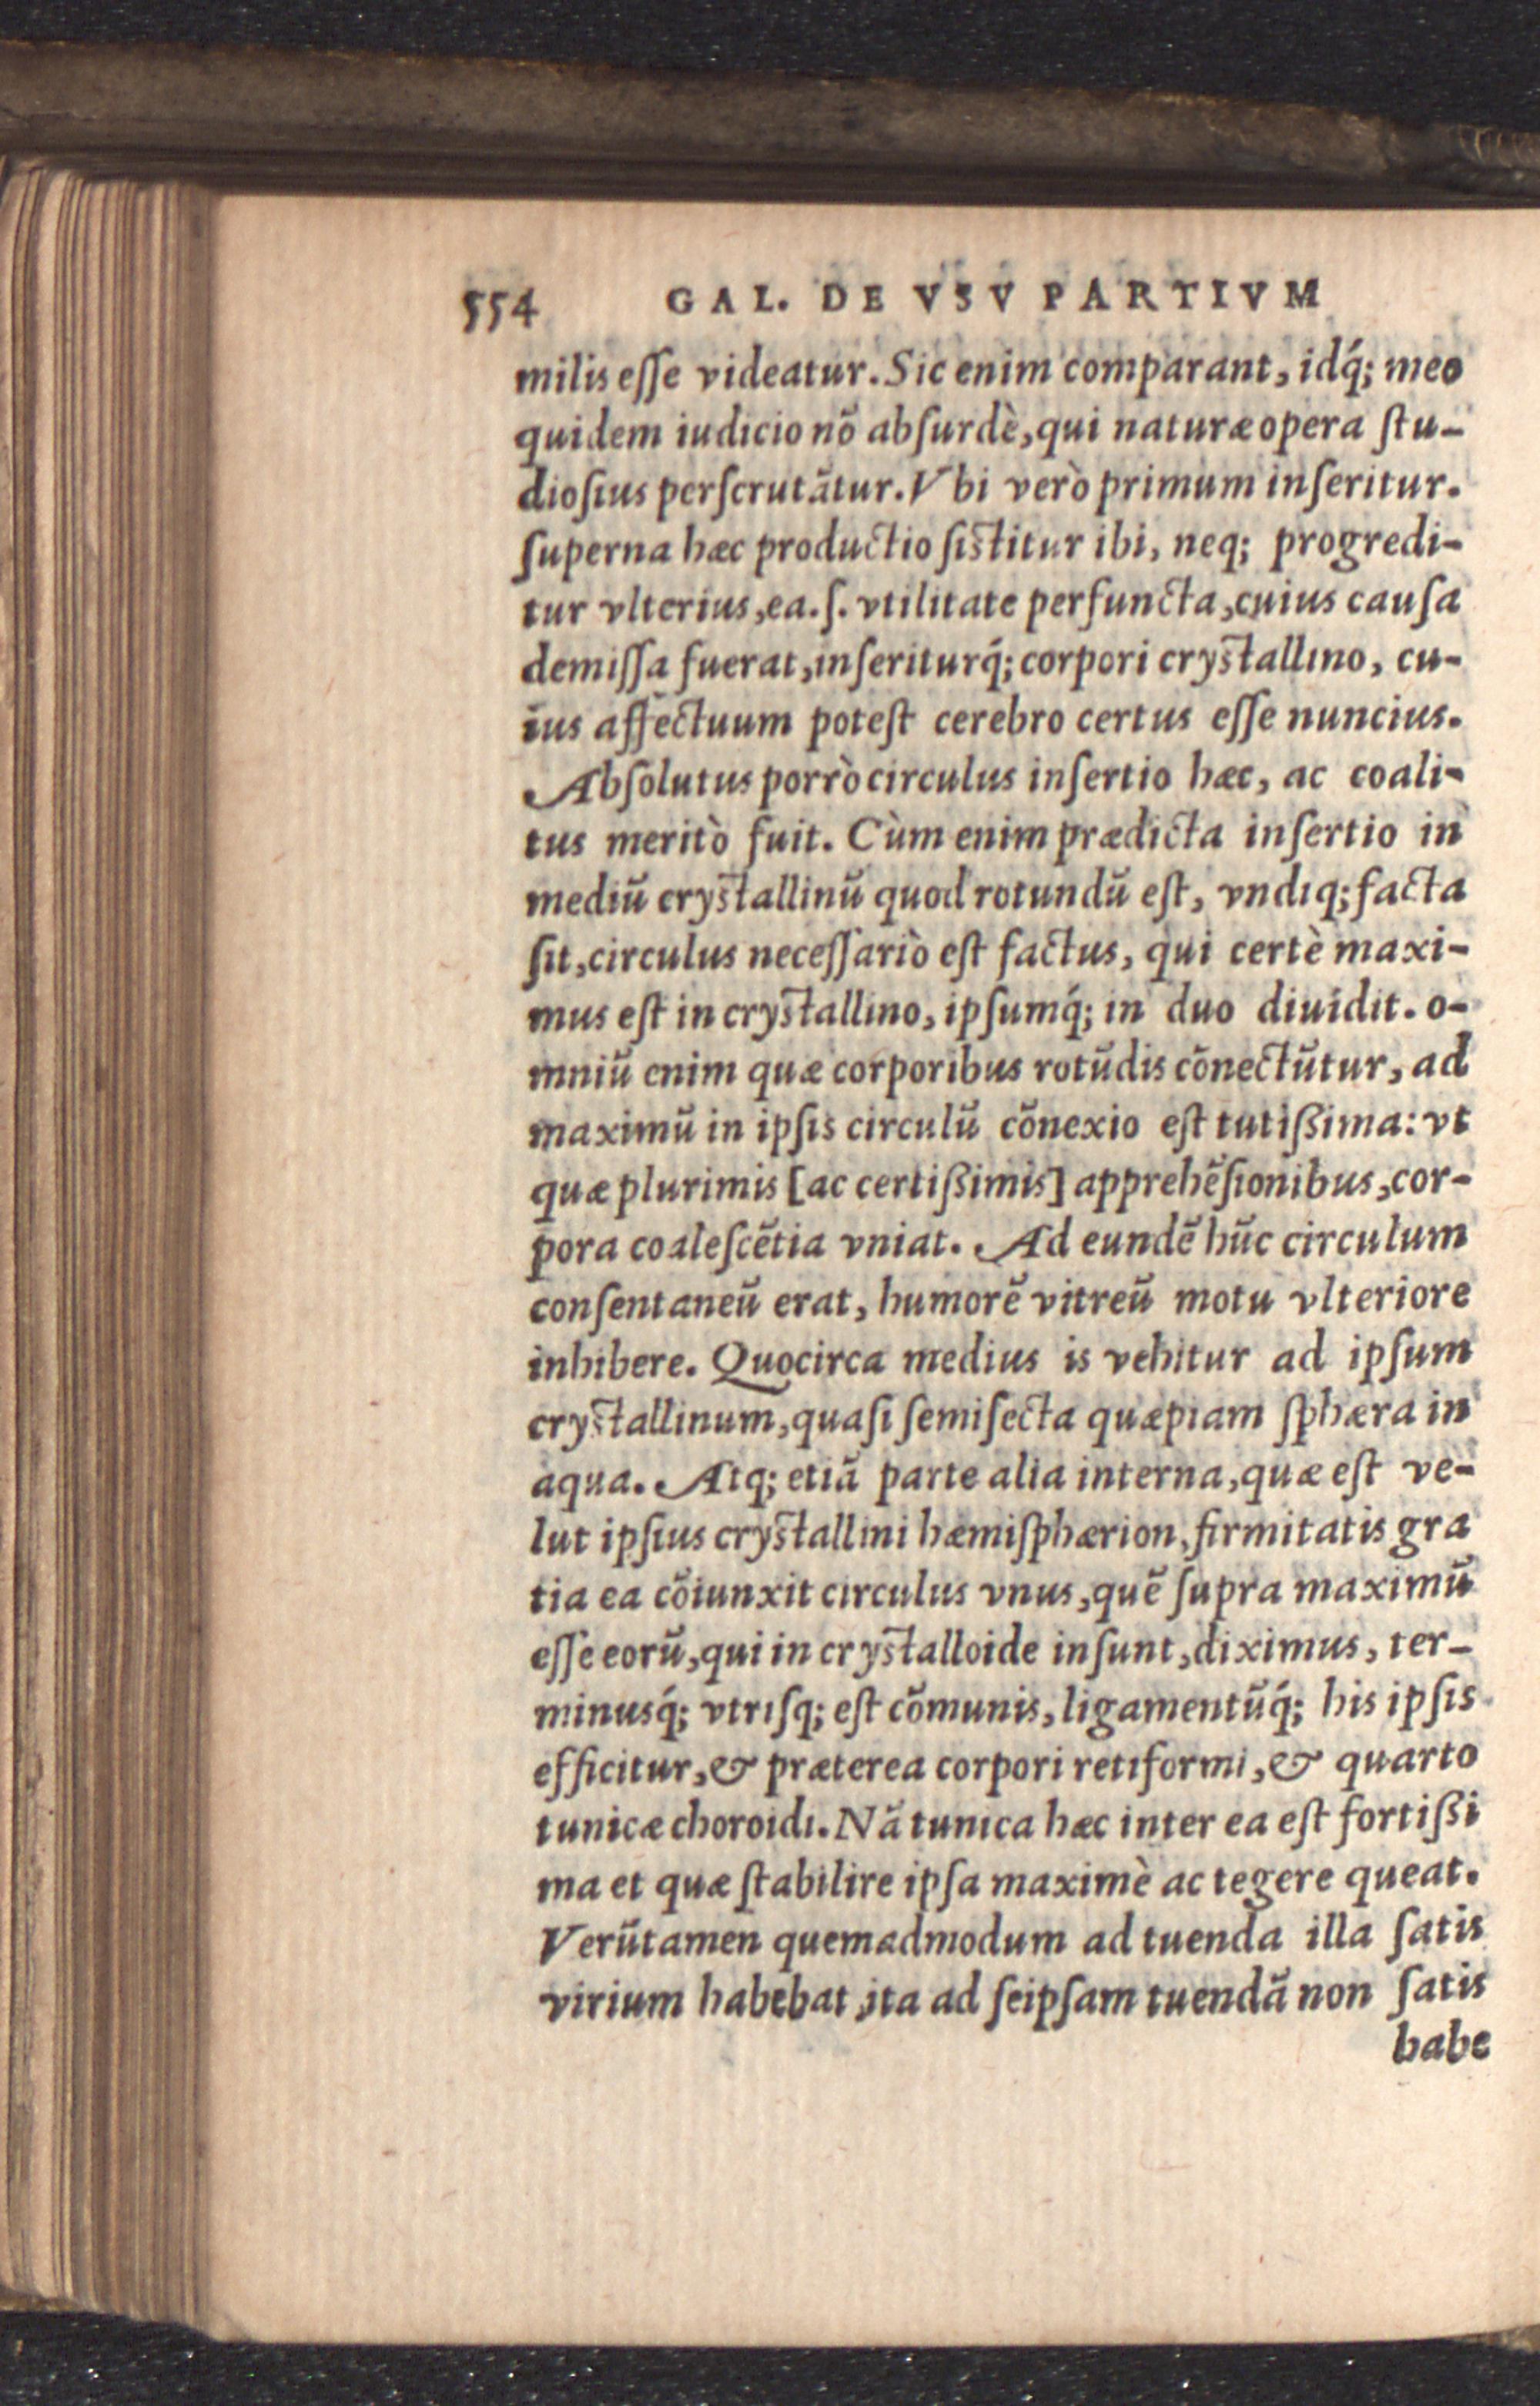 554 GAL. DE VSV PARTIVM
milis eſſe videatur. Sic enim comparant, idq́; meo
quidem iudicio nõ abſurdè, qui naturæ opera ſtu-
dioſius perſcrutãtur. Vbi verò primum inſeritur.
ſuperna hæc productio ſiſtitur ibi, neq; progredi-
tur vlterius, ea. ſ. vtilitate perfuncta, cuius cauſa
demiſſa fuerat, inſeriturq́; corpori cryſtallino, cu-
ius affectuum poteſt cerebro certus eſſe nuncius.
Abſolutus porrò circulus inſertio hæc, ac coali-
tus meritò fuit. Cùm enim prædicta inſertio in
mediũ cryſtallinũ quod rotundũ eſt, vndiq; facta
ſit, circulus neceſſariò eſt factus, qui certè maxi-
mus eſt in cryſtallino, ipſumq́; in duo diuidit. o-
mniũ enim quæ corporibus rotũdis cõnectũtur, ad
maximũ in ipſis circulũ cõnexio eſt tutißima: vt
quæ plurimis [ac certißimis] apprehẽſionibus, cor-
pora coaleſcẽtia vniat. Ad eundẽ hũc circulum
conſentaneũ erat, humorẽ vitreũ motu vlteriore
inhibere. Quocirca medius is vehitur ad ipſum
cryſtallinum, quaſi ſemiſecta quæpiam ſphæra in
aqua. Atq; etiã parte alia interna, quæ eſt ve-
lut ipſius cryſtallini hæmiſphærion, firmitatis gra
tia ea cõiunxit circulus vnus, quẽ ſupra maximũ
eſſe eorũ, qui in cryſtalloide inſunt, diximus, ter-
minusq́; vtriſq; eſt cõmunis, ligamentũq́; his ipſis
efficitur, & præterea corpori retiformi, & quarto
tunicæ choroidi. Nã tunica hæc inter ea eſt fortißi
ma et quæ ſtabilire ipſa maximè ac tegere queat.
Verũtamen quemadmodum ad tuenda illa ſatis
virium habebat, ita ad ſeipſam tuendã non ſatis
habe